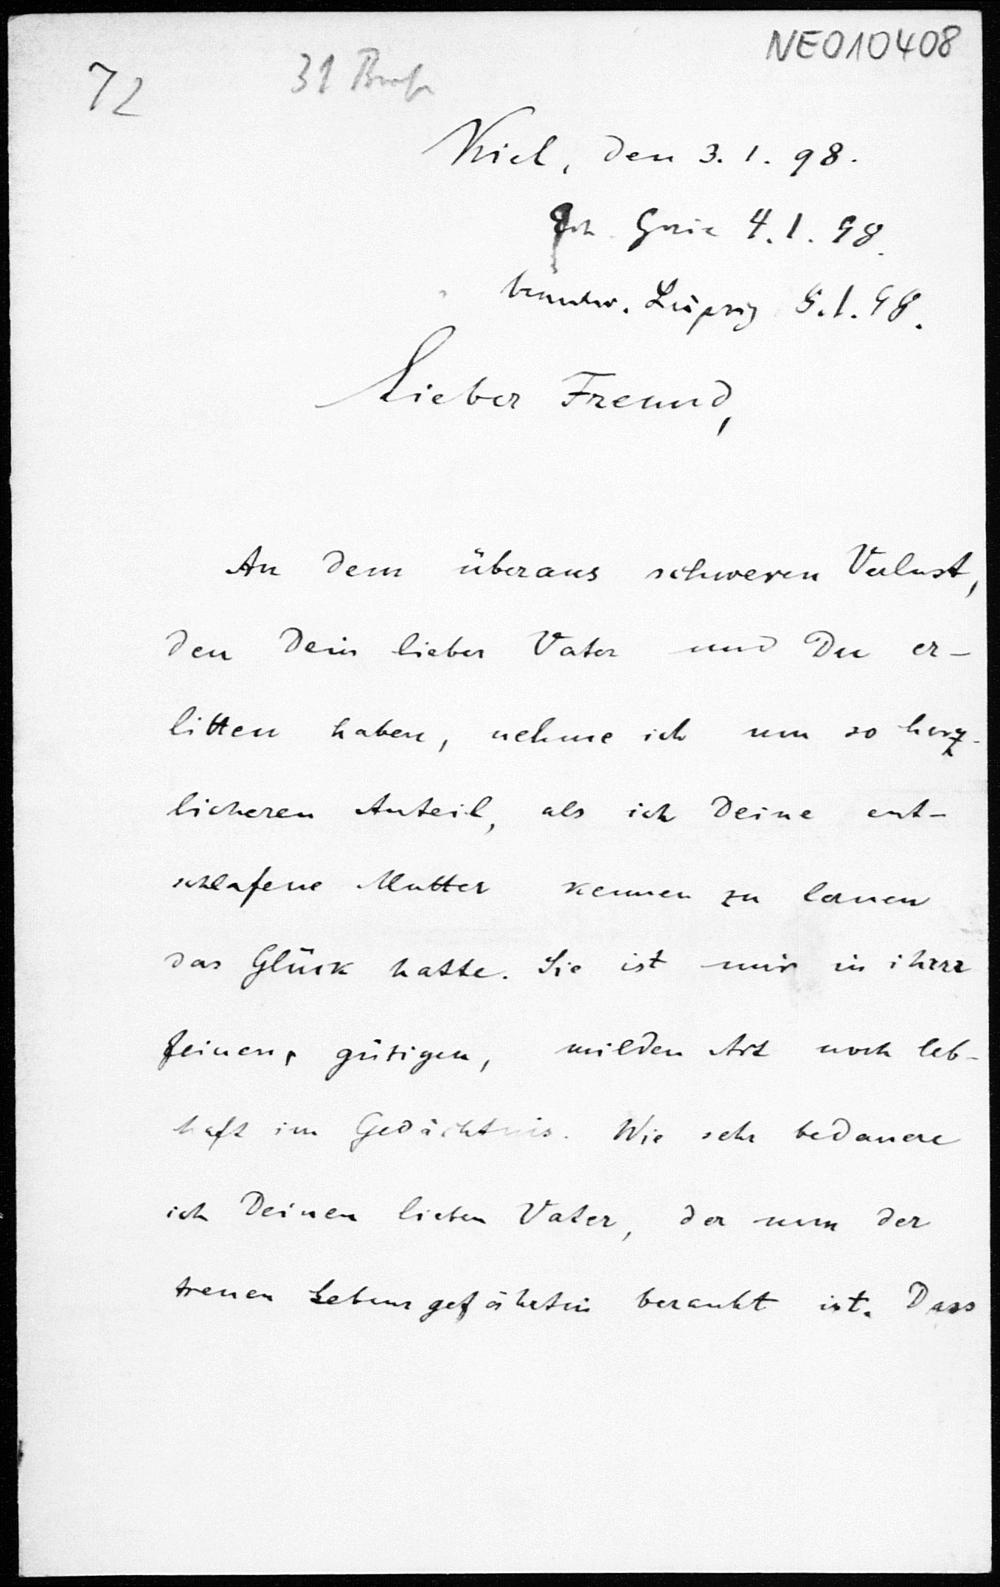 NE010408
72
31
Kiel, den 3. 1. 98.
4. 1. 98.
beantw. Leipzig 5. 1. 98.
Lieber Freund,
An dem überaus schweren Verlust,
den Dein lieber Vater und Du er-
litten haben, nehme ich um so herz-
licheren Anteil, als ich Deine ent-
schlafene Mutter kennen zu lernen
das Glück hatte. Sie ist mir in ihrer
feinen, gütigen, milden Art noch leb-
haft im Gedächtnis. Wie sehr bedauere
ich Deinen lieben Vater, der nun der
treuen Lebensgefährtin beraubt ist. Dass